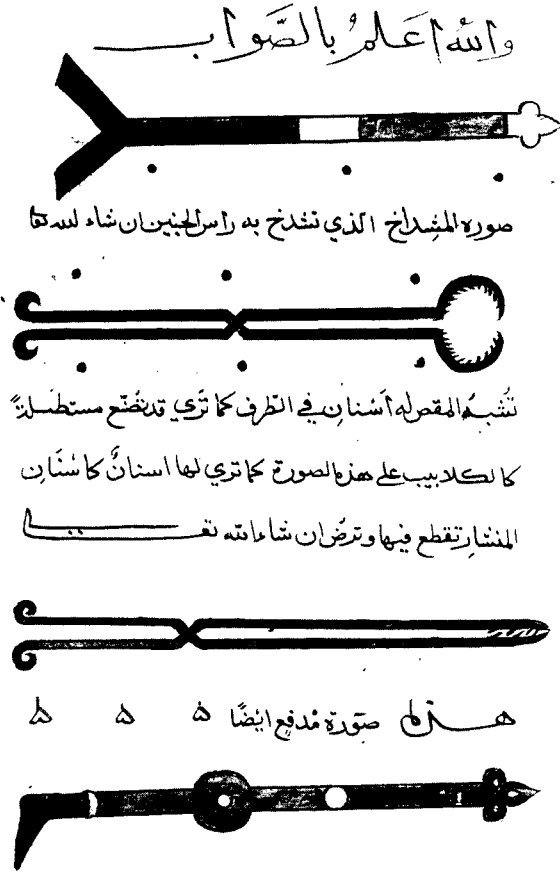 والله اعلم بالصواب
صورة المشداخ الذي تشدخ به راس الجنين ان شاء الله تعا
تُشبه المقص له أسنان في الطرف كما تري قد تصنع مستطيلةً
كالكلاليب علي هذه الصورة كما تري لها اسنانٌ كاسْنَانِ
المنشار تقطع فيها وترض ان شاء الله تعــلى
هــذه صورة مدفع ايضًا